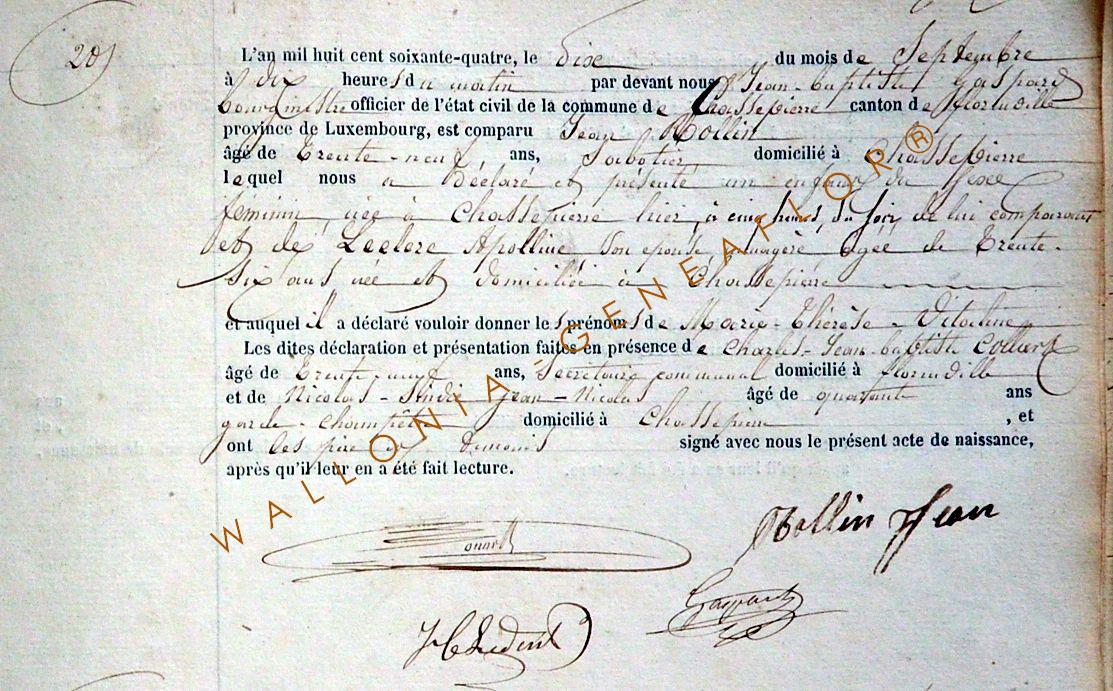 20)
L'an mil huit cent soixante-quatre, le Dixe du mois de Septembre
à dix heures du matin par devant nous Jean-baptiste Gaspard
bourgmestre officier de l'état civil de la commune de Chassepierre canton de florenville
province de Luxembourg, est comparu Jean Rollin
âgé de trente-neuf ans, Sabotier, domicilié à Chassepierre
lequel nous a Déclaré et présenté un enfant du Sexe
feminin, née à Chassepierre hier, à cinq heures du Soir, de lui comparant
et de Leclere Apolline son epouse, menagère agée de trente-
six ans née et domiciliée à Chassepierre
et auquel il a déclaré vouloir donner les prénoms de Marie-Thérèse-
Les dites déclaration et présentation faites en présence de Charles-Jean-baptiste
âgé de trente-neuf ans, Secretaire communal domicilié à florenville
et de Nicolas- Jean-Nicolas âgé de quarante ans
garde-champêtre domicilié à Chassepierre, et
ont les père et temoins signé avec nous le présent acte de naissance,
après qu'il leur en a été fait lecture.
Rollin Jean
Gaspard
WALLONIA - GENEAFLOR®